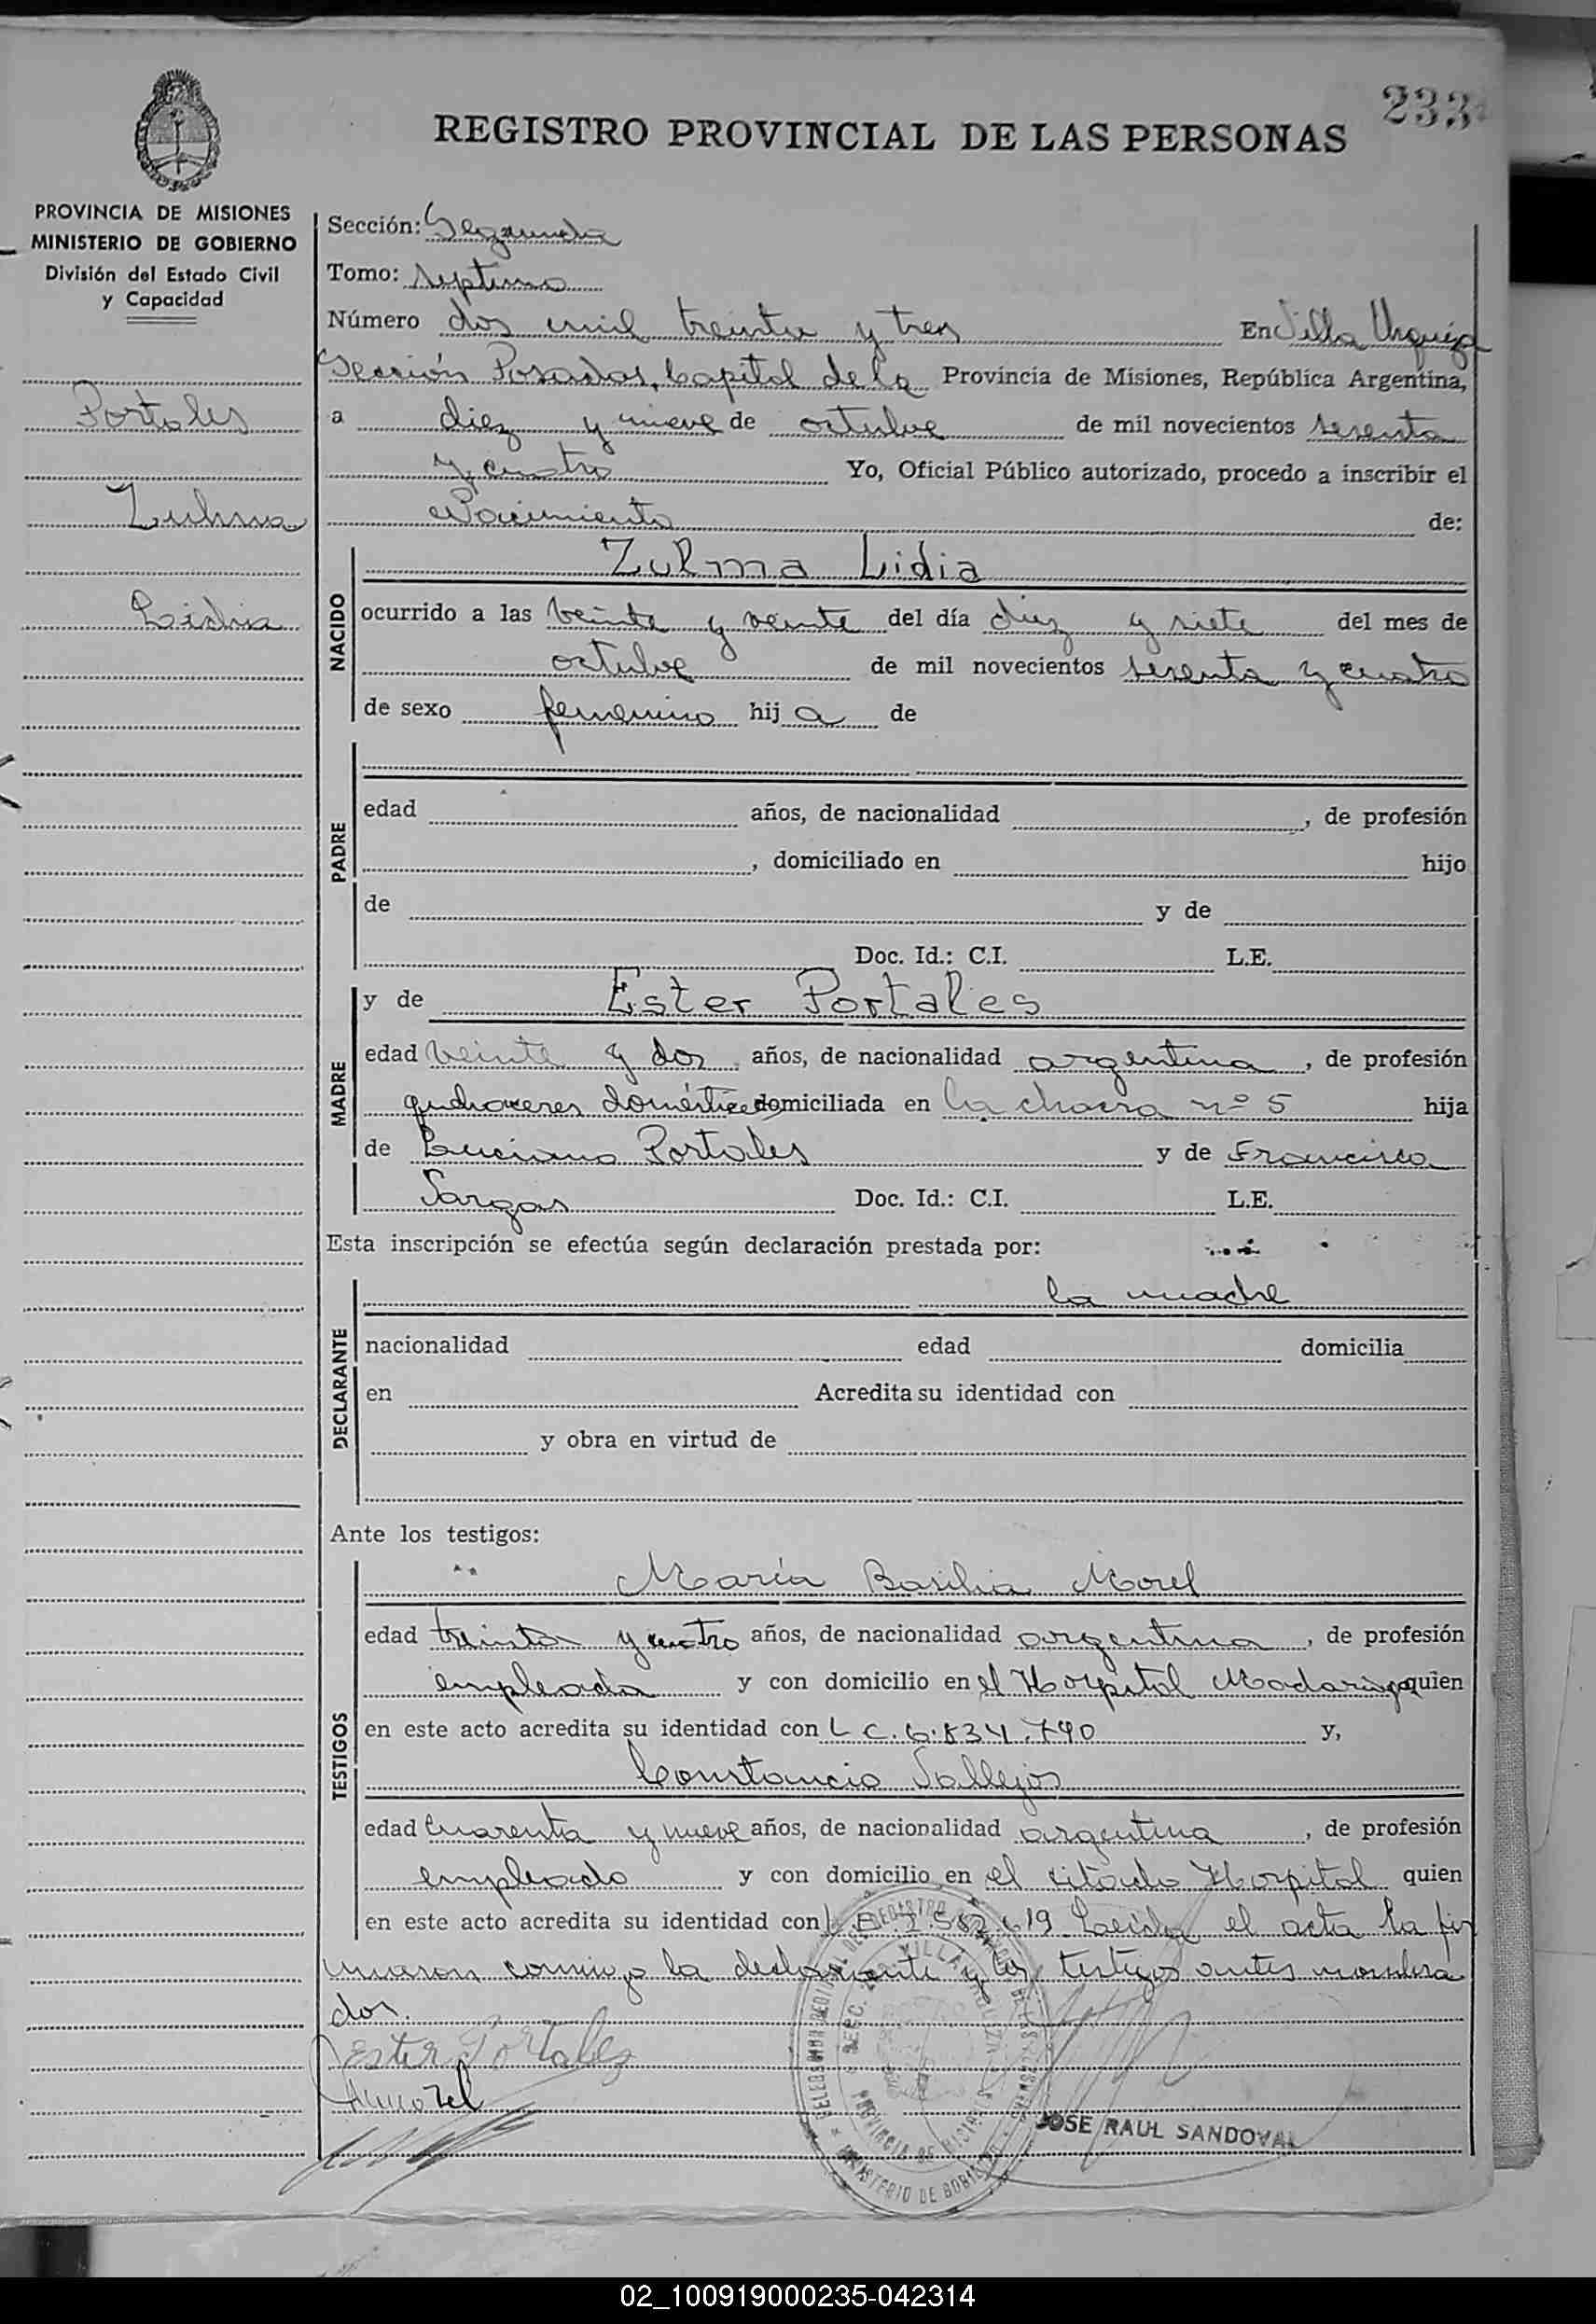 233
REGISTRO PROVINCIAL DE LAS PERSONAS
PROVINCIA DE MISIONES
MINISTERIO DE GOBIERNO
División del Estado Civil
y Capacidad
Portales
Zulma
Lidia
Sección: Segunda
Tomo: septimo
Número dos mil treinta y tres En Villa Urquiza
Sección Posadas, Capital de la Provincia de Misiones, República Argentina,
a diez y nueve de octubre de mil novecientos sesenta
y cuatro Yo, Oficial Público autorizado, procedo a inscribir el
Nacimiento de:
NACIDO
Zulma Lidia
ocurrido a las veinte y veinte del día diez y siete del mes de
octubre de mil novecientos sesenta y cuatro
de sexo femenino hij a de
PADRE
edad años, de nacionalidad , de profesión
, domiciliado en hijo
de y de
Doc. Id.: C.I. L.E.
MADRE
y de Ester Portales
edad veinte y dos años, de nacionalidad argentina , de profesión
quehaceres domésticos domiciliada en la chacra nº 5 hija
de Luciano Portales y de Francisca
Vargas Doc. Id.: C.I. L.E.
Esta inscripción se efectúa según declaración prestada por:
DECLARANTE
la madre
nacionalidad edad domicilia
en Acredita su identidad con
y obra en virtud de
Ante los testigos:
TESTIGOS
María Basilia Morel
edad treinta y cuatro años, de nacionalidad argentina , de profesión
empleada y con domicilio en el Hospital Madariaga quien
en este acto acredita su identidad con L C. 6.834.790 y,
Constancio Vallejos
edad cuarenta y nueve años, de nacionalidad argentina , de profesión
empleado y con domicilio en el citado Hospital quien
en este acto acredita su identidad con L E. 2.582.619 Leida el acta la fir
maron conmigo la declarante y los testigos antes nombra
dos.
Ester Portales
JOSE RAUL SANDOVAL
PROVINCIA DE MISIONES
MINISTERIO DE GOBIERNO
02_100919000235-042314